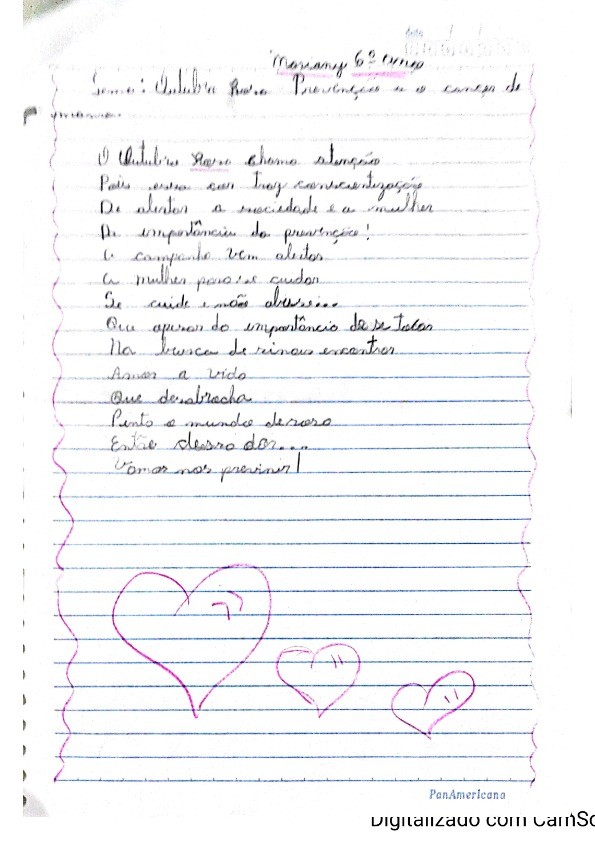 Mariany 6º ano
Tema: Outubro Rosa Prevenção a o cançer de
mama.
O Outubro Rosa chama atenção
Pois essa cor traz conscientização
De alertar a sociedade e a mulher
Da importância da prevenção!
A campanha vem alertar
A mulher para se cuidar
Se cuide e não abuse...
Que apesar da importância de se tocar
Na busca de sinais encontrar
Amor a vida
Que desabrocha
Pinta o mundo de rosa
Então dessa dor...
Vamos nos previnir!
PanAmericana
Digitalizado com CamSc